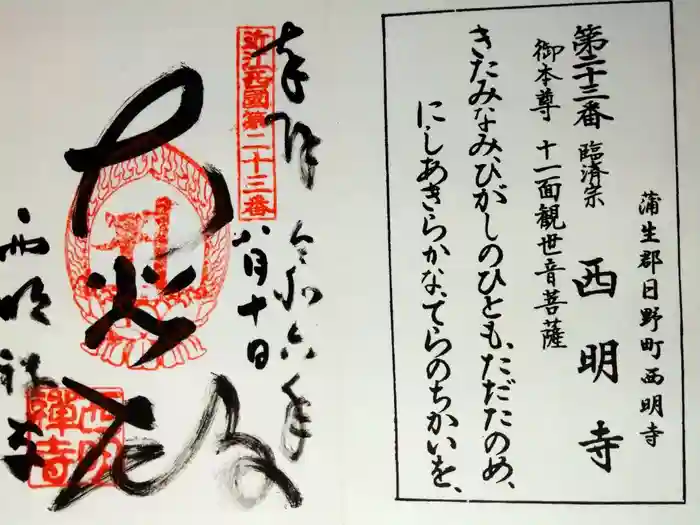 蒲生郡日野町西明寺
第二十三番 臨済宗 西明寺
御本尊 十一面観世音菩薩
きたみなみ、ひがしのひとも、ただたのめ、
にしあきらかな、てらのちかいを、
奉拝 令和六年
八月十日
近江西國第二十三番
西明禅寺
西明禅寺